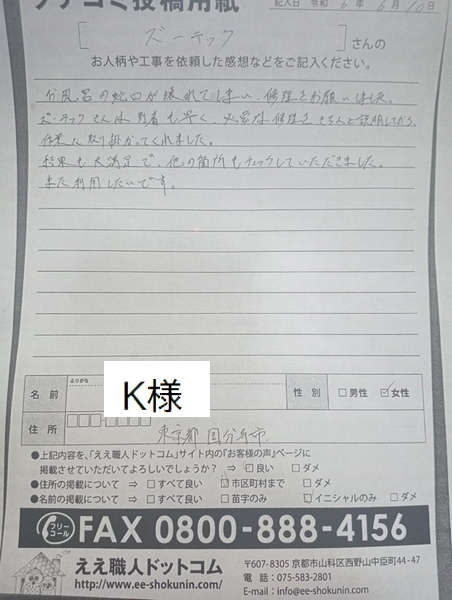 クチコミ投稿用紙
記入日 令和 6年 6月 10日
[ ズーテック ]さんの
お人柄や工事を依頼した感想などをご記入ください。
お風呂の蛇口が壊れてしまい、修理をお願いしました。
ズーテックさんは到着も早く、必要な修理をきちんと説明してから
作業に取り掛かってくれました。
結果も大満足で、他の箇所もチェックしていただきました。
また利用したいです。
ふりがな
名前 K様 性別 □男性 ☑女性
住所 東京都 国分寺市
●上記内容を、「ええ職人ドットコム」サイト内の「お客様の声」ページに
掲載させていただいてよろしいでしょうか? ⇒ ☑良い □ダメ
●住所の掲載について ⇒ □すべて良い ☑市区町村まで □ダメ
●名前の掲載について ⇒ □すべて良い □苗字のみ ☑イニシャルのみ □ダメ
フリーコール FAX 0800-888-4156
ええ職人ドットコム
http://www.ee-shokunin.com/
〒607-8305 京都市山科区西野山中臣町44-47
電話:075-583-2801
E-mail:info@ee-shokunin.com